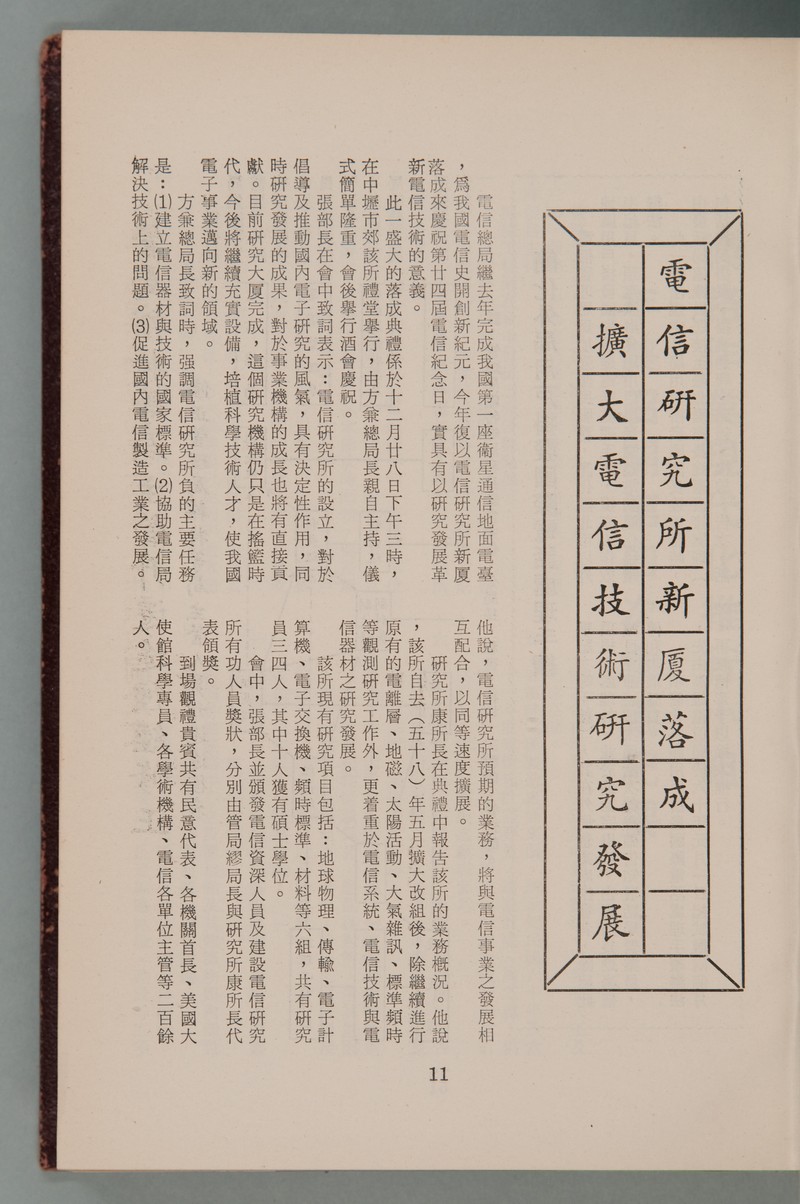 電信研究所新廈落成
擴大電信技術研究發展
電信總局繼去年完成我國第一座衞星通信地面電臺
，爲我國電信史開創新紀元，今年復以電信研究所新厦
落成來慶祝第廿四屆電信紀念日，實具有以研究發展革
新電信技術的意義。
此一盛大的落成典禮係於十二月廿八日下午三時，
在中壢市郊該所禮堂舉行，由方兼總局長親自主持，儀
式簡單隆重，會後舉行酒會慶祝。
張部長在會中致詞表示：電信研究所的設立，對於
倡導及推動國內電子研究的風氣，具有決定性作用，同
時研究發展的成果，對於事業機構的成長也將有直接貢
獻。目前研究大厦完成，這個研究機構仍只是在搖籃時
代，今後將繼續充實設備，培植科學技術人才，使我國
電子事業邁向新的領域。
方兼總局長致詞時，强調電信研究所負的主要任務
是：⑴建立電信器材與技術的國家標準。⑵協助電信局
解決技術上的問題。⑶促進國內電信製造工業之發展。
他說，電信研究所預期的業務，將與電信事業之發展相
互配合，以同等速度擴展。
研究所康所長在典禮中報告該所的業務概況。他說
，該所自去（五十八）年五月擴大改組後，除繼續進行
原有的電離層、地磁、太陽活動、大氣雜訊、標準頻時
等觀測研究工作外，更着重於電信系統、電信技術與電
信器材之研究發展。
該所現有研究項目包括：地球物理、傳輸、電子計
算機、電子交換機、頻時標準、材料等六組，共有研究
員三四人，其中十人獲有碩士學位。
會中，張部長並頒發電信資深人員及建設電信研究
所有功人員獎狀，分別由管局繆局長與研究所康所長代
表領獎。
到場觀禮貴賓共有民意代表、各機關首長、美國大
使館科學專員、各學術機構、電信各單位主管等二百餘
人。
11